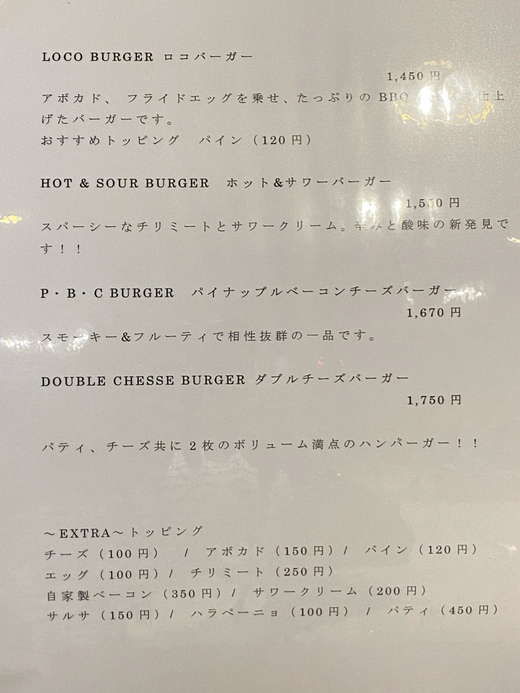 LOCO BURGER ロコバーガー
1,450 円
アボカド、 フライドエッグを乗せ、たっぷりの BBQ 仕上
げたバーガーです。
おすすめトッピング パイン（120 円）
HOT & SOUR BURGER ホット&サワーバーガー
円
スパーシーなチリミートとサワークリーム。辛みと酸味の新発見で
す！！
P・B・C BURGER パイナップルベーコンチーズバーガー
1,670 円
スモーキー&フルーティで相性抜群の一品です。
DOUBLE CHESSE BURGER ダブルチーズバーガー
1,750 円
パティ、チーズ共に 2 枚のボリューム満点のハンバーガー！！
～EXTRA～トッピング
チーズ（100 円） / アボカド（150 円）/ パイン（120 円）
エッグ（100 円）/ チリミート（250 円）
自家製ベーコン（350 円）/ サワークリーム（200 円）
サルサ（150 円）/ ハラペーニョ（100 円） / パティ（450 円）